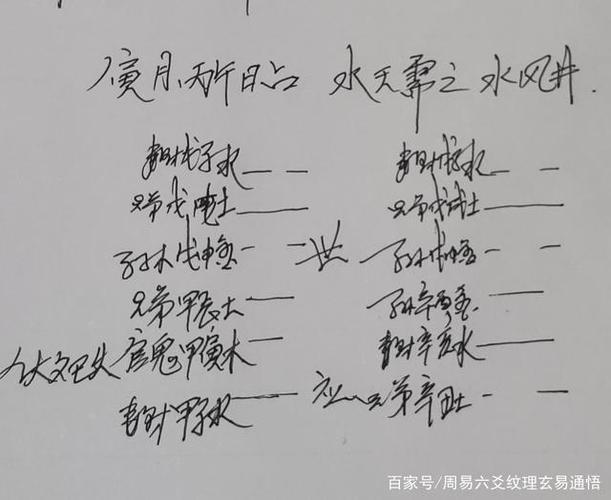 寅月丙午日占 水天需之水风井.
妻财戊子水 妻财戊子水
兄弟戊戌土 兄弟戊戌土
子孙戊申金 世 子孙戊申金
兄弟甲辰土 子孙辛酉金
巳火 官鬼甲寅木 妻财辛亥水
妻财甲子水 应 兄弟辛丑土
百家号/周易六爻纹理玄易通悟